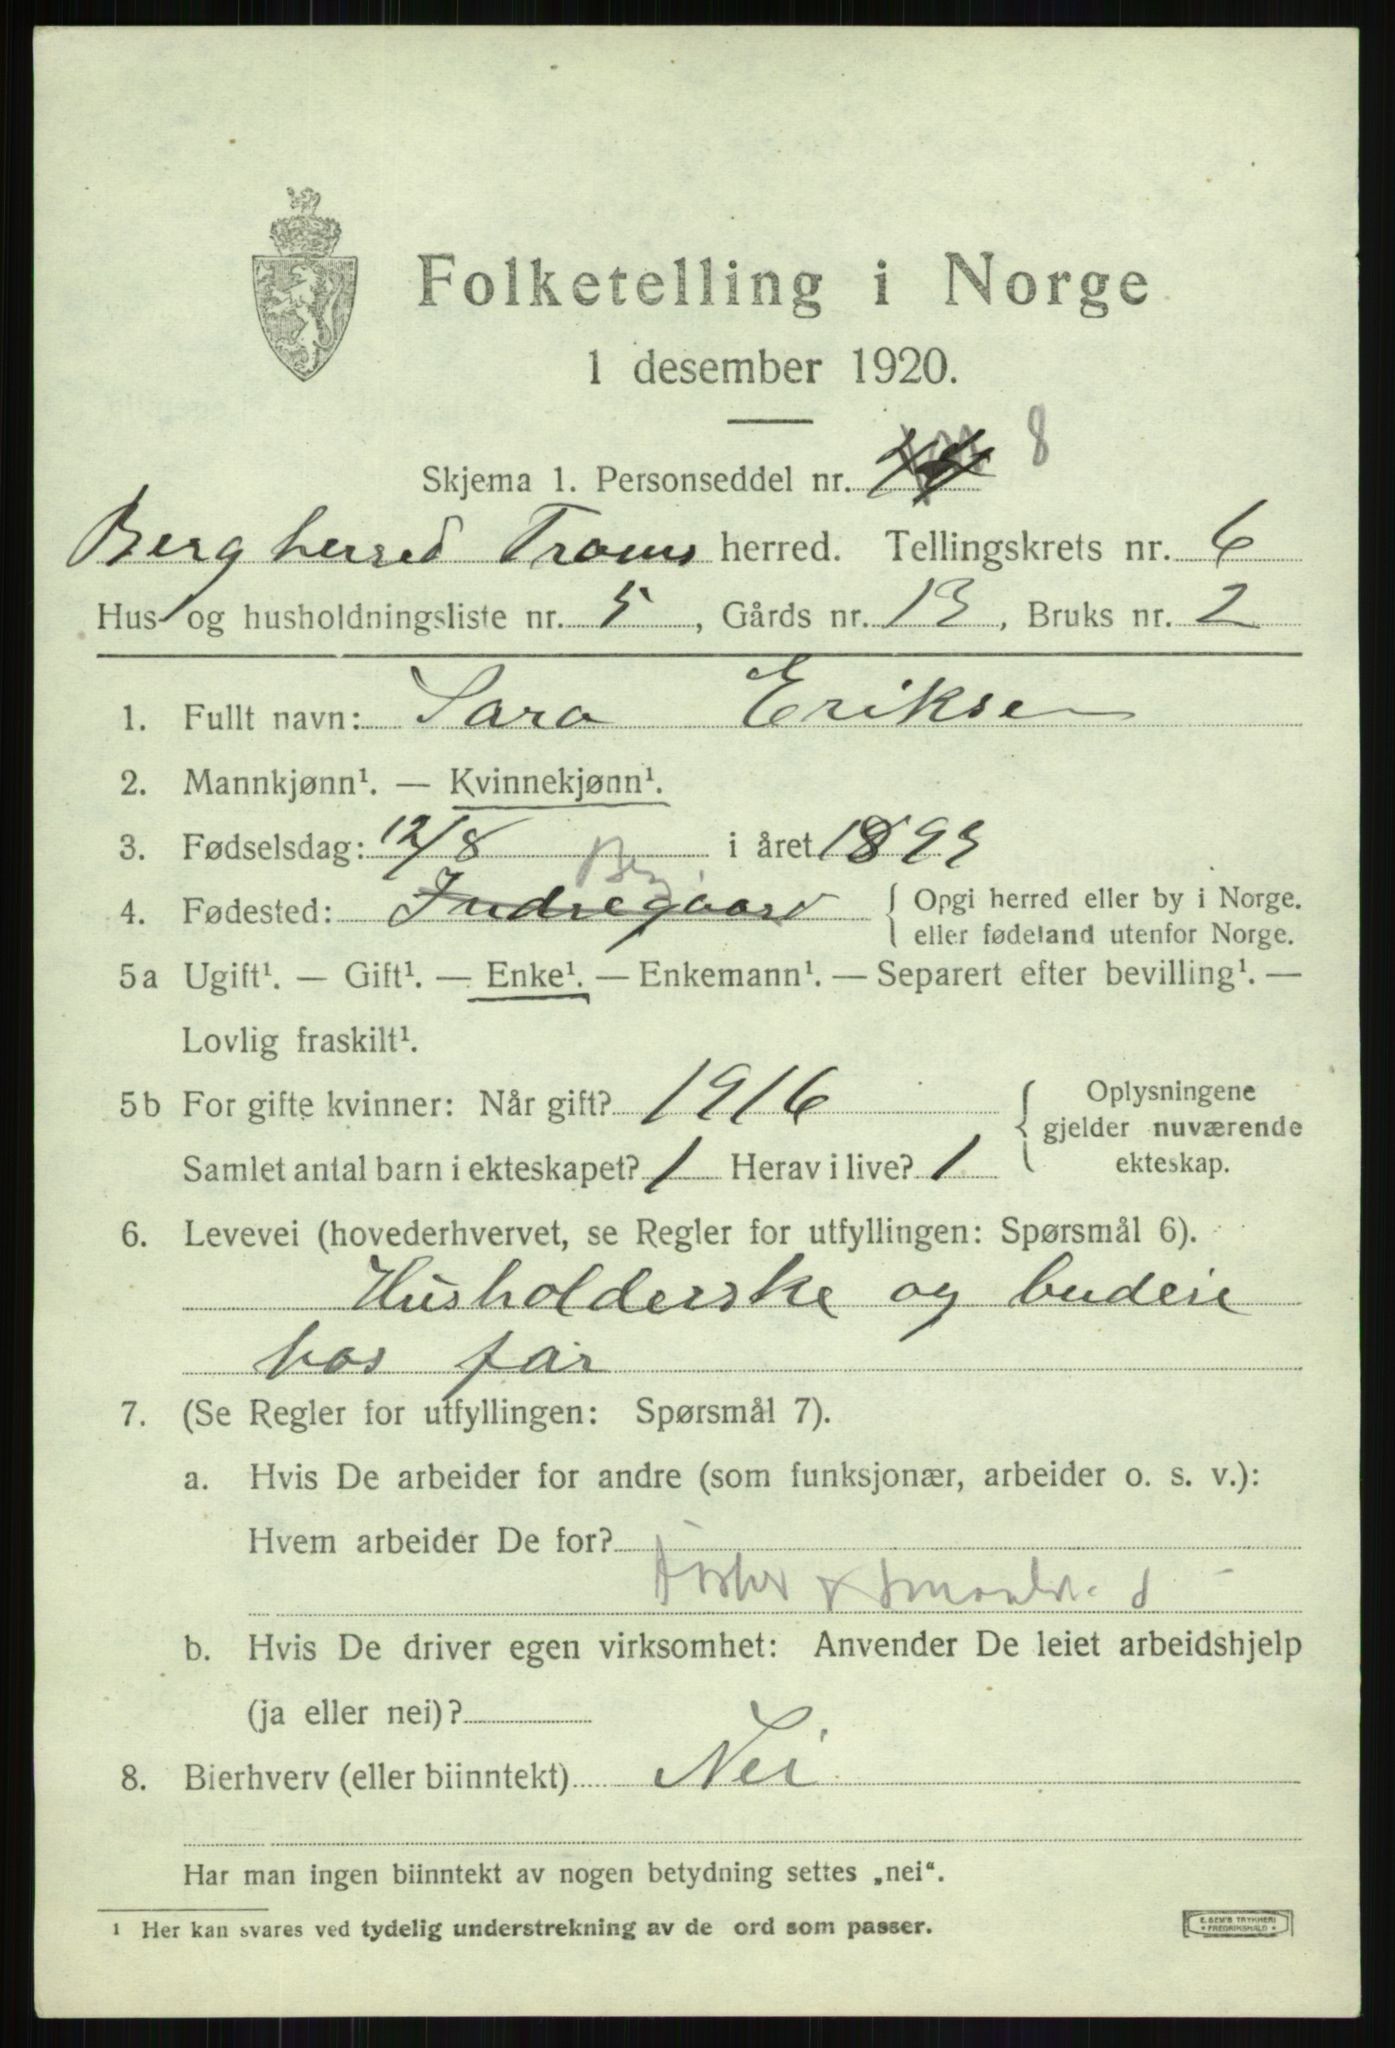 Folketelling i Norge
1 desember 1920.
8
Skjema 1. Personseddel nr.
Berg herred Troms herred. Tellingskrets nr. 6
Hus og husholdningsliste nr. 5, Gårds nr. 13, Bruks nr. 2
1. Fullt navn: Sara Eriksen
2. Mannkjønn¹. — Kvinnekjønn¹.
3. Fødselsdag: 12/8 i året 1893
Berg
4. Fødested: Indregaard { Opgi herred eller by i Norge.
eller fødeland utenfor Norge.
5a Ugift¹. — Gift¹. — Enke¹. — Enkemann¹. — Separert efter bevilling¹. —
Lovlig fraskilt¹.
5b For gifte kvinner: Når gift? 1916 { Oplysningene
gjelder nuværende
Samlet antal barn i ekteskapet? 1 Herav i live? 1 ekteskap.
6. Levevei (hovederhvervet, se Regler for utfyllingen: Spørsmål 6).
Husholderske og budeie
hos far
7. (Se Regler for utfyllingen: Spørsmål 7).
a. Hvis De arbeider for andre (som funksjonær, arbeider o. s. v.):
Hvem arbeider De for?
b. Hvis De driver egen virksomhet: Anvender De leiet arbeidshjelp
(ja eller nei)?
8. Bierhverv (eller biinntekt) Nei
Har man ingen biinntekt av nogen betydning settes „nei“.
¹ Her kan svares ved tydelig understrekning av de ord som passer.
E. SEM'S TRYKKERI
* FREDRIKSHALD *